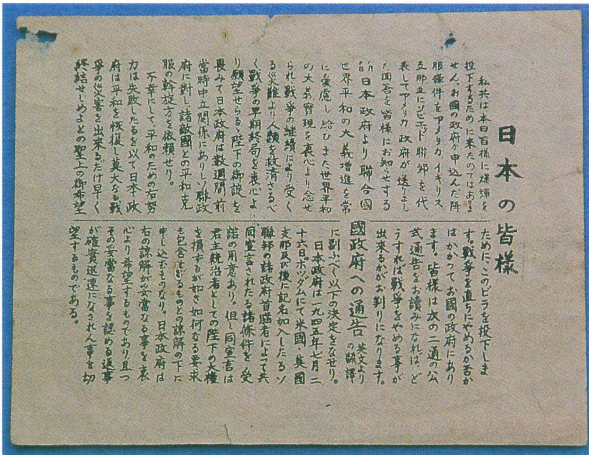 日本の皆様
私共は本日皆様に爆弾を
投下するために来たのではありま
せん。お國の政府が申込んだ降
服條件をアメリカ、イギリス、
支那並にソビエット聯邦を代
表してアメリカ政府が送りまし
た回答を皆様にお知らせする
ために、このビラを投下しま
す。戦争を直ちにやめるか否か
はかかつてお國の政府にあり
ます。皆様は次の二通の公
式通告をお読みになれば、ど
うすれば戦争をやめる事が
出来るかがお判りになります。
日本政府より 聯合
國政府への通告 英文よりの飜譯
世界平和の大義増進を常
に愛慮し給ひまた世界平和
の大義實現を衷心より念せ
られ戦争の継續により受く
る災難より人類を救済さるべ
く戦争の早期終局を衷心よ
り願望せらるる陛下の御設を
畏みて日本政府は数週間前
當時中立関係にありしソ聯政
府に對し諸敵國との平和克
服の斡旋方を依頼せり。
不幸にして、平和のための右努
力は失敗したるを以て日本政
府は平和を恢復し莫大なる戦
争の災害を出来るだけ早く
終結せしめよとの聖上の御希望
に副ふべく以下の決定をなせり。
日本政府は一九四五年七月二
十六日ポツダムにて米國、英國
支那及び後に記名加入したるソ
聯邦の諸政府首脳者によって共
同宣言されたる諸條件を受
諾の用意あり。但し同宣言は
君主統治者としての陛下の大權
を損するが如き如何なる要求
も包含せざるものとの諒解の下に
申し込むものなり。日本政府は
右の諒解が妥當なる事を衷
心より希望するものであり且つ
その妥當なる事を認める返事
が確實迅速になされん事を切
望するものである。